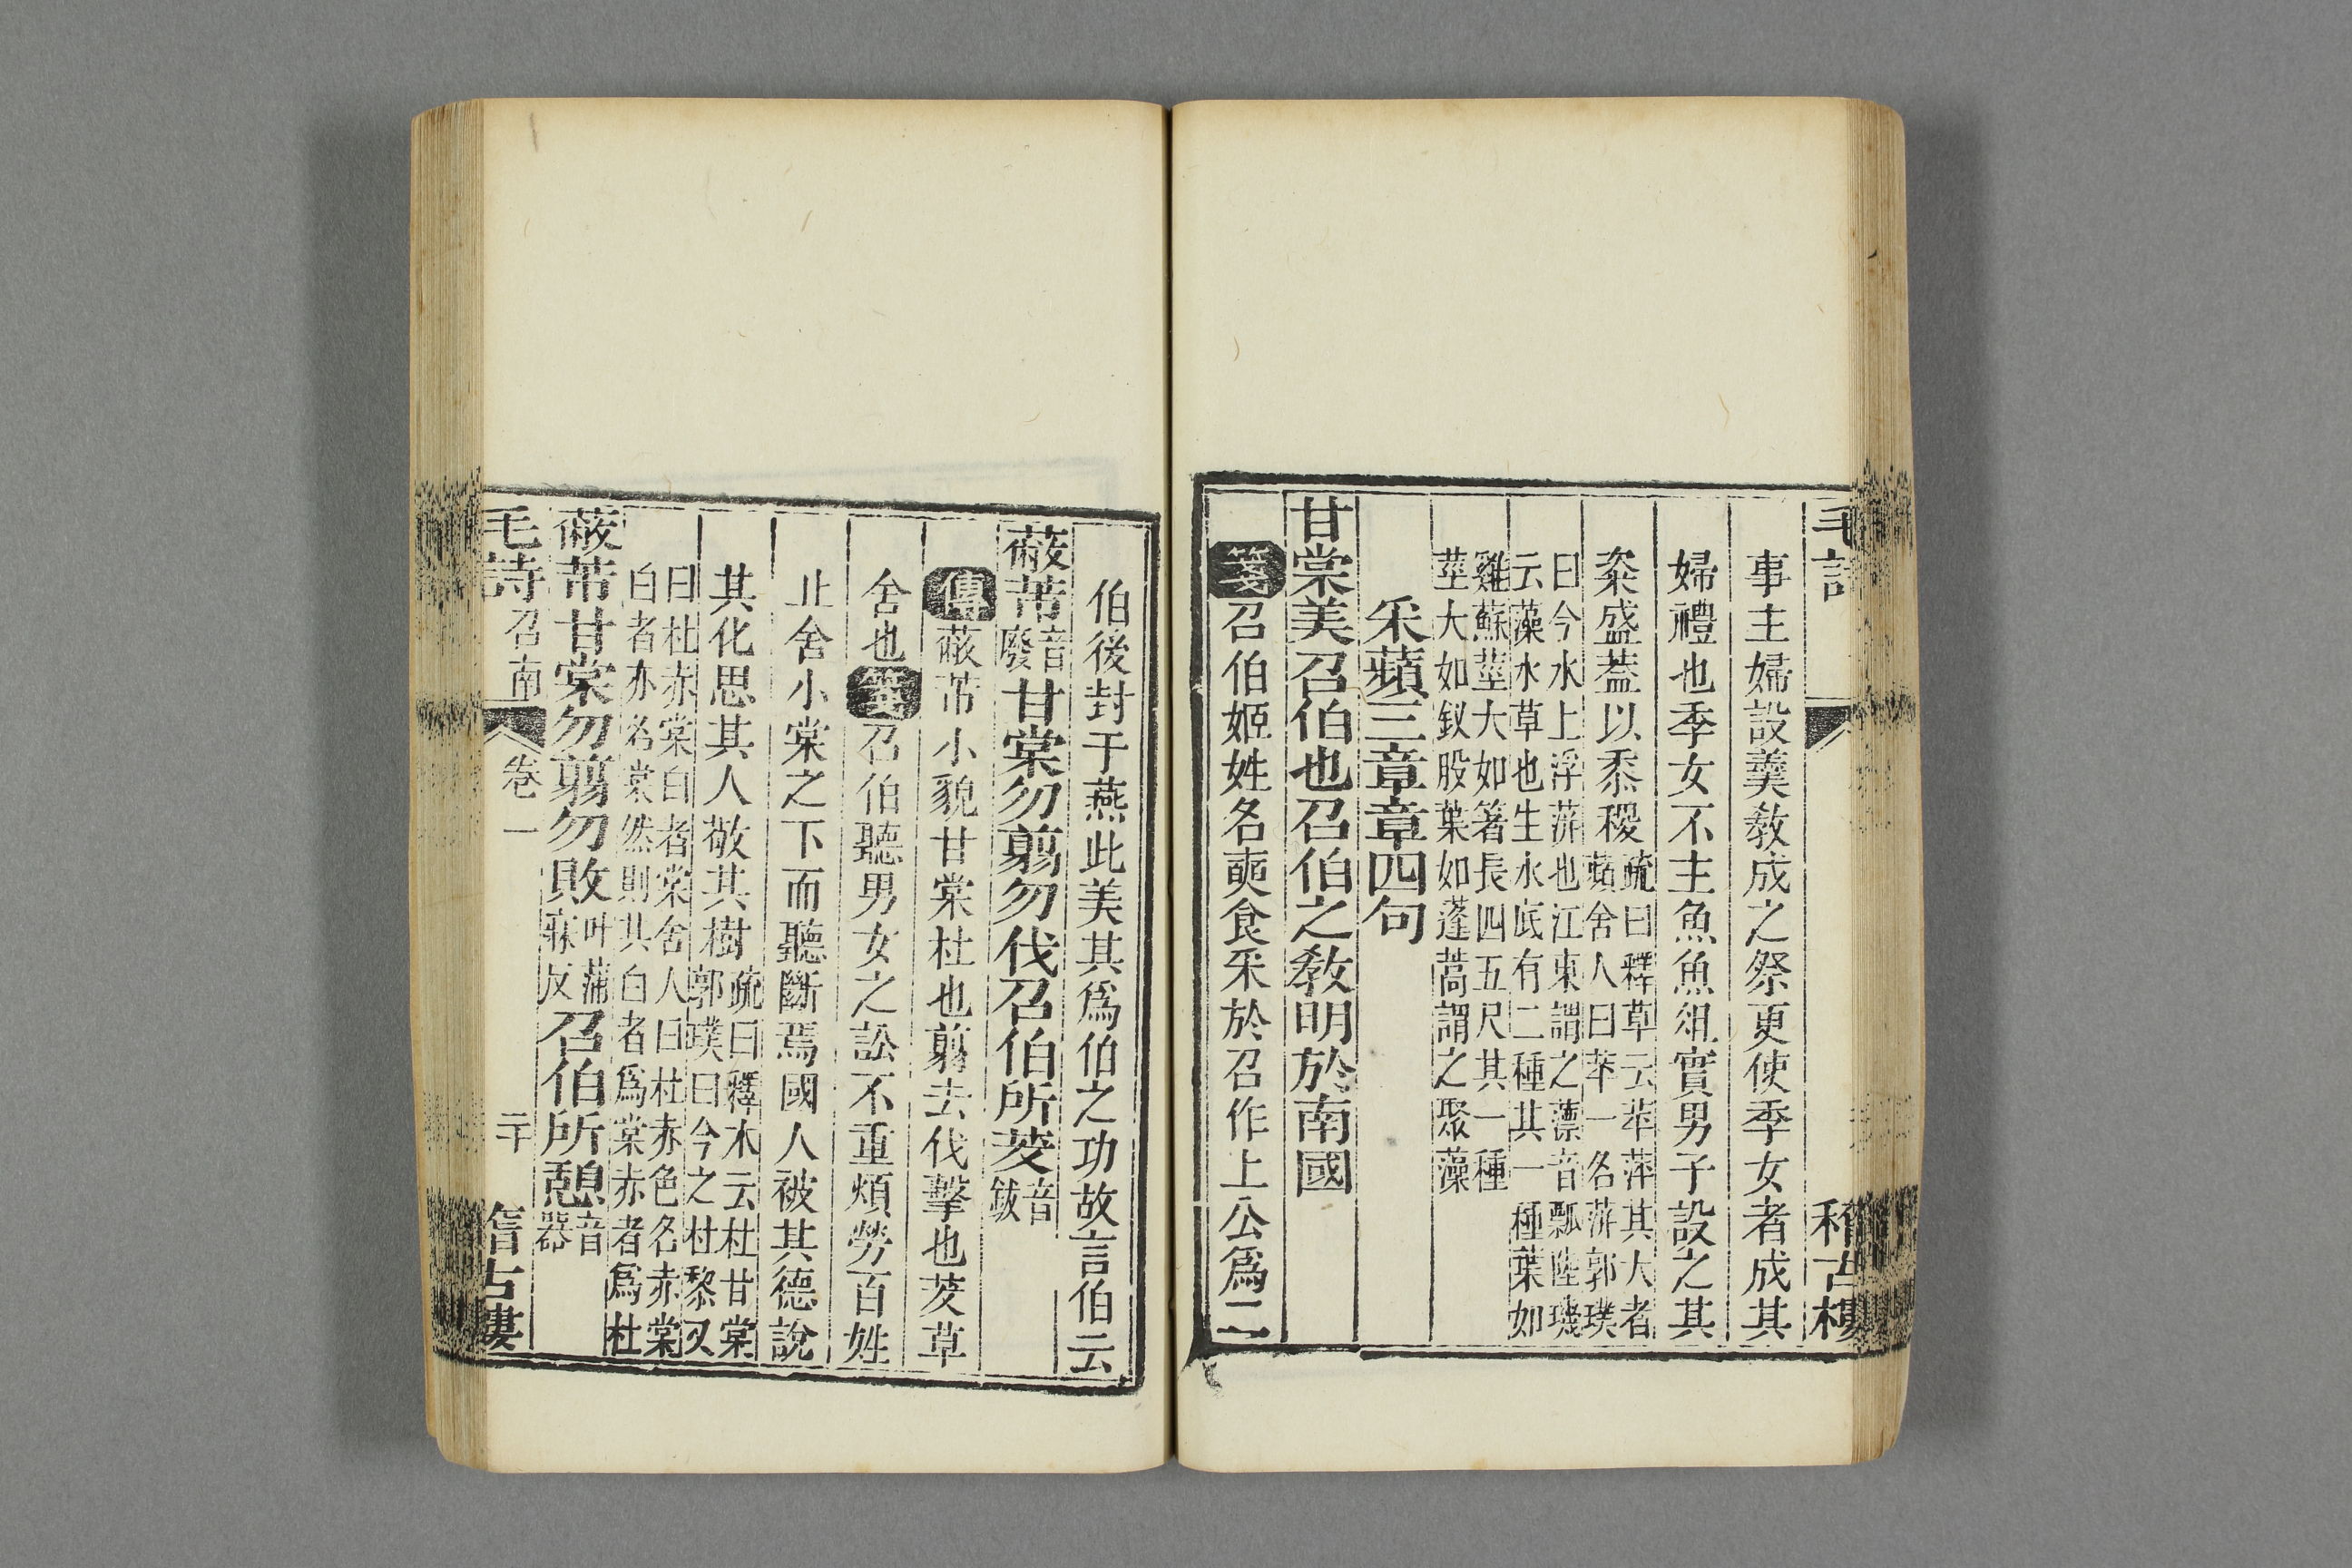 毛詩 稽古樓
事主婦設羹教成之祭更使季女者成其
婦禮也季女不主魚魚俎實男子設之其
粢盛蓋以黍稷疏曰釋草云苹萍其大者
蘋舍人曰苹一名蓱郭璞
曰今水上浮蓱也江東謂之薸音瓢陸璣
云藻水草也生水底有二種其一種葉如
雞蘇莖大如箸長四五尺其一種
莖大如釵股葉如蓬蒿謂之聚藻
采蘋三章章四句
甘棠美召伯也召伯之教明於南國
箋召伯姬姓名奭食采於召作上公爲二
伯後封于燕此美其爲伯之功故言伯云
蔽芾音廢甘棠勿翦勿伐召伯所茇音鈸
傳蔽芾小貌甘棠杜也翦去伐擊也茇草
舍也箋召伯聽男女之訟不重煩勞百姓
止舍小棠之下而聽斷焉國人被其德說
其化思其人敬其樹疏曰釋木云杜甘棠
郭璞曰今之杜黎又
曰杜赤棠白者棠舍人曰杜赤色名赤棠
白者亦名棠然則其白者爲棠赤者爲杜
蔽芾甘棠勿翦勿敗叶蒲寐反召伯所憩音器
毛詩召南 卷一 二十 稽古樓